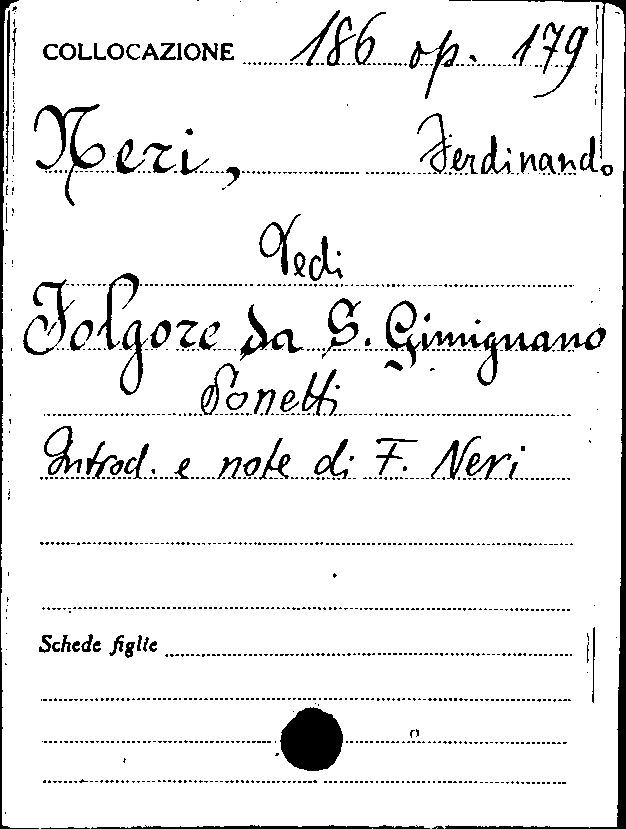 COLLOCAZIONE 186 op. 179
Neri, Ferdinando
Vedi
Folgore da S. Gimignano
Sonetti
Introd. e note di F. Neri
Schede figlie